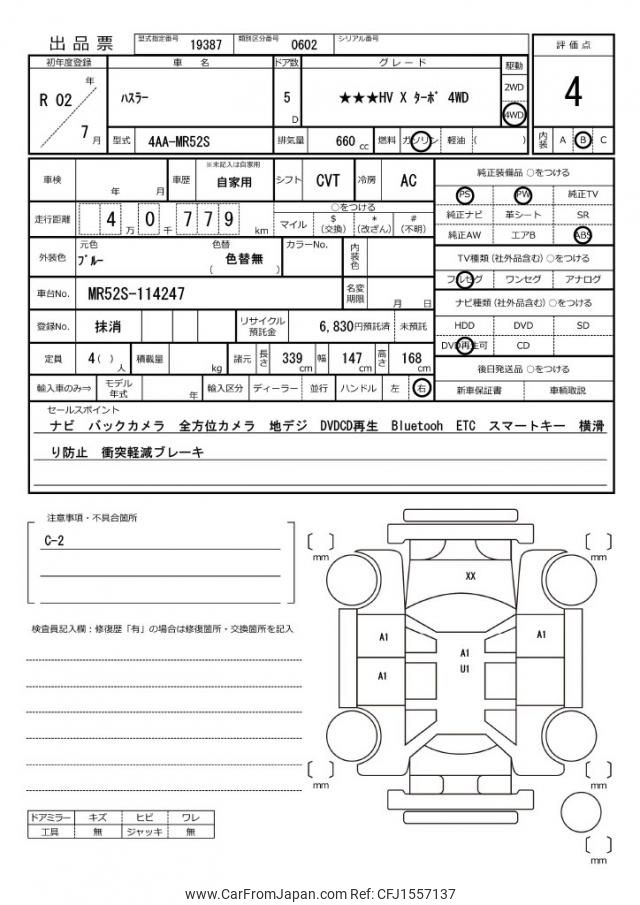 出品票 型式指定番号 19387 類別区分番号 0602 シリアル番号
初年度登録 車名 ドア数 グレード 駆動 評価点
R 02 年 7 月 ﾊｽﾗｰ 5 D ★★★HV X ﾀｰﾎﾞ 4WD 2WD 4WD 4
型式 4AA-MR52S 排気量 660 cc 燃料 ガソリン 軽油 ( ) 内装 A B C
車検 年 月 車歴 ※未記入は自家用 自家用 シフト CVT 冷房 AC
走行距離 4 万 0 千 7 7 9 km
○をつける
マイル $ (交換) * (改ざん) # (不明)
外装色 元色 ﾌﾞﾙｰ 色替 ( 色替無 ) カラーNo. 内装色
車台No. MR52S-114247 名変期限 月 日
登録No. 抹消 リサイクル預託金 6,830円預託済 未預託
定員 4( ) 人 積載量 kg 諸元 長さ 339 cm 幅 147 cm 高さ 168 cm
輸入車のみ⇒ モデル年式 年 輸入区分 ディーラー 並行 ハンドル 左 右
純正装備品 ○をつける
PS PW 純正TV
純正ナビ 革シート SR
純正AW エアB ABS
TV種類 (社外品含む) ○をつける
フルセグ ワンセグ アナログ
ナビ種類 (社外品含む) ○をつける
HDD DVD SD
DVD再生可 CD
後日発送品 ○をつける
新車保証書 車輌取説
セールスポイント
ナビ バックカメラ 全方位カメラ 地デジ DVDCD再生 Bluetooh ETC スマートキー 横滑
り防止 衝突軽減ブレーキ
注意事項・不具合箇所
C-2
検査員記入欄：修復歴「有」の場合は修復箇所・交換箇所を記入
mm
mm
XX
A1
A1
A1
U1
A1
mm
mm
mm
ドアミラー キズ ヒビ ワレ
工具 無 ジャッキ 無
www.CarFromJapan.com Ref: CFJ1557137